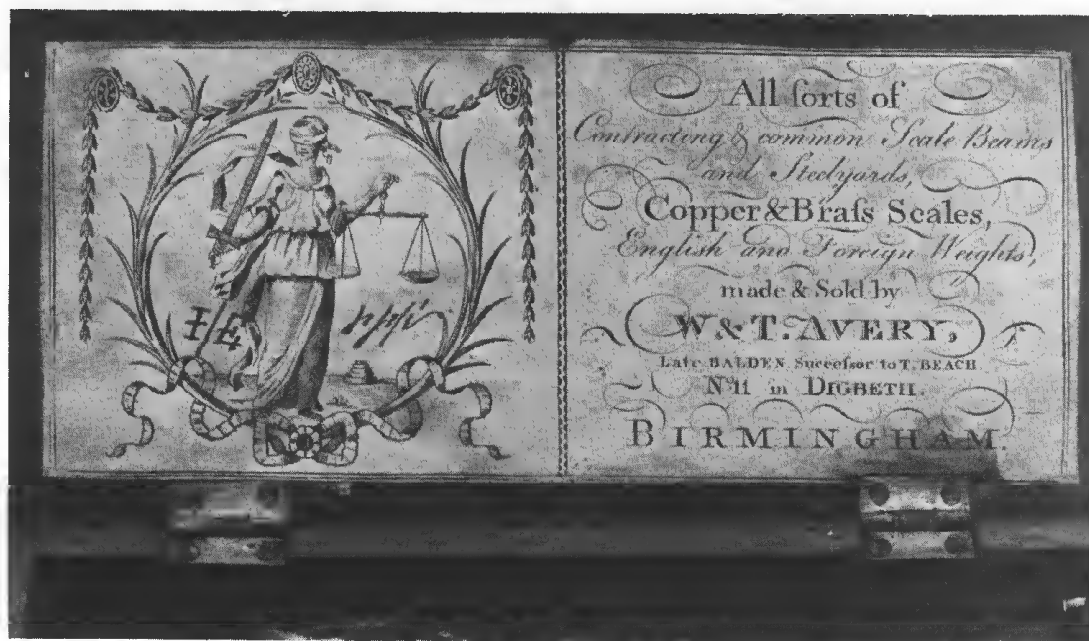 All ſorts of
Contracting & common Scale Beams
and Steelyards,
Copper & Braſs Scales,
English and Foreign Weights,
made & Sold by
W & T. AVERY,
Late BALDEN Succeſsor to T. BEACH
No. 11 in DIGBETH.
BIRMINGHAM.